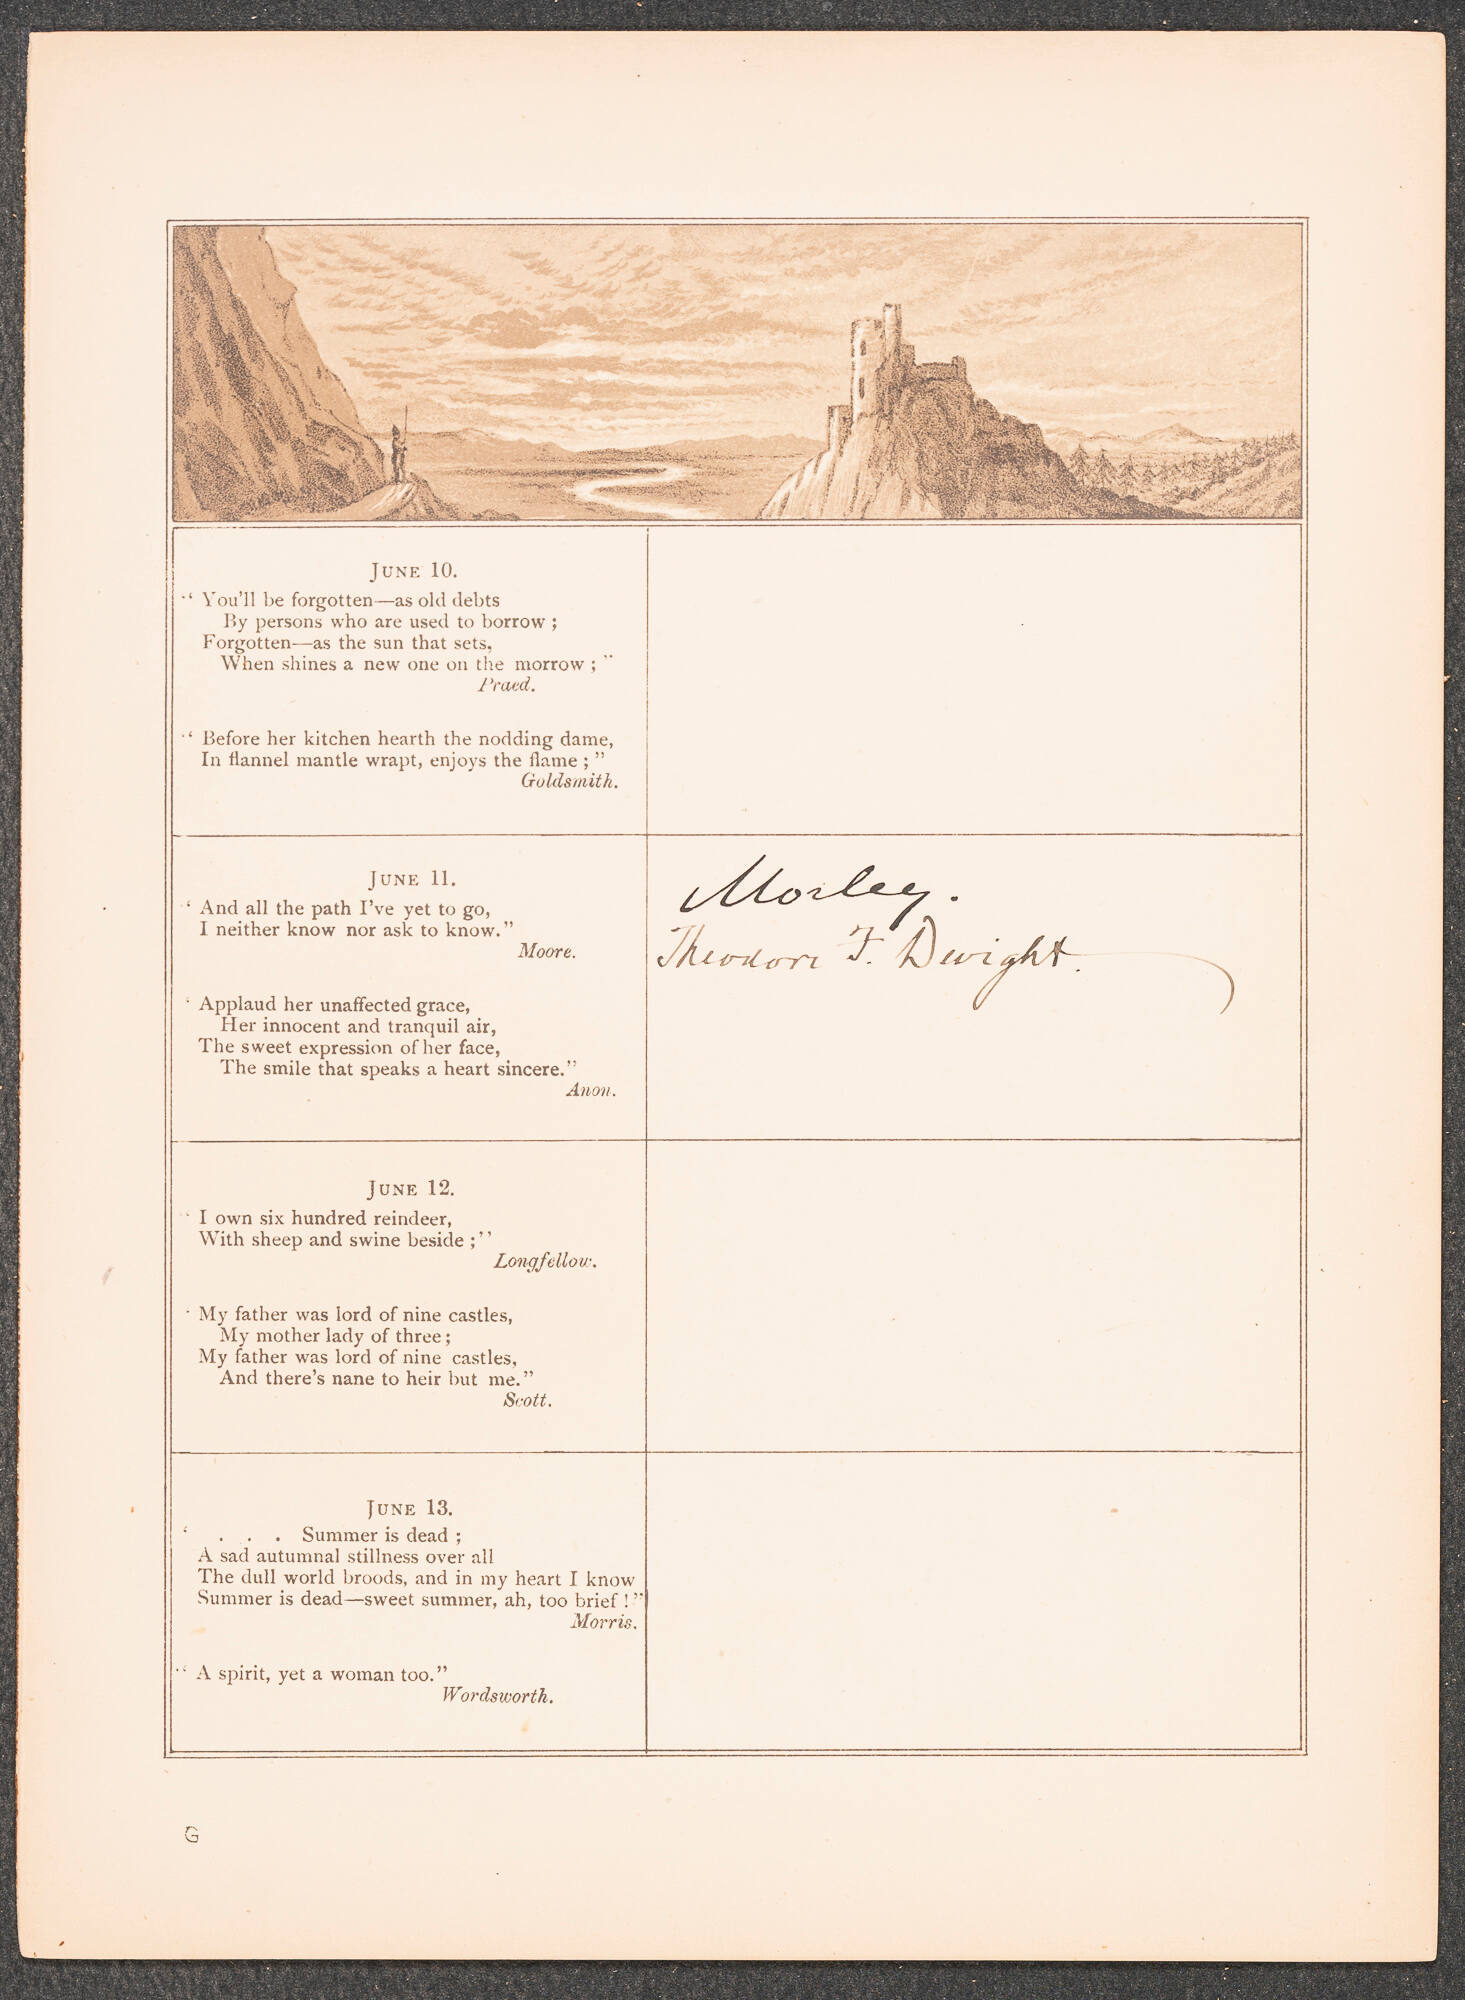 JUNE 10.
“ You'll be forgotten—as old debts
By persons who are used to borrow ;
Forgotten—as the sun that sets,
When shines a new one on the morrow ; ”
Praed.
“ Before her kitchen hearth the nodding dame,
In flannel mantle wrapt, enjoys the flame ; ”
Goldsmith.
JUNE 11.
“ And all the path I've yet to go,
I neither know nor ask to know.”
Moore.
‘ Applaud her unaffected grace,
Her innocent and tranquil air,
The sweet expression of her face,
The smile that speaks a heart sincere.”
Anon.
Morley.
Theodore F. Dwight.
JUNE 12.
“ I own six hundred reindeer,
With sheep and swine beside ;”
Longfellow.
‘ My father was lord of nine castles,
My mother lady of three ;
My father was lord of nine castles,
And there's nane to heir but me.”
Scott.
JUNE 13.
‘ . . . Summer is dead ;
A sad autumnal stillness over all
The dull world broods, and in my heart I know
Summer is dead—sweet summer, ah, too brief !”
Morris.
“ A spirit, yet a woman too.”
Wordsworth.
G